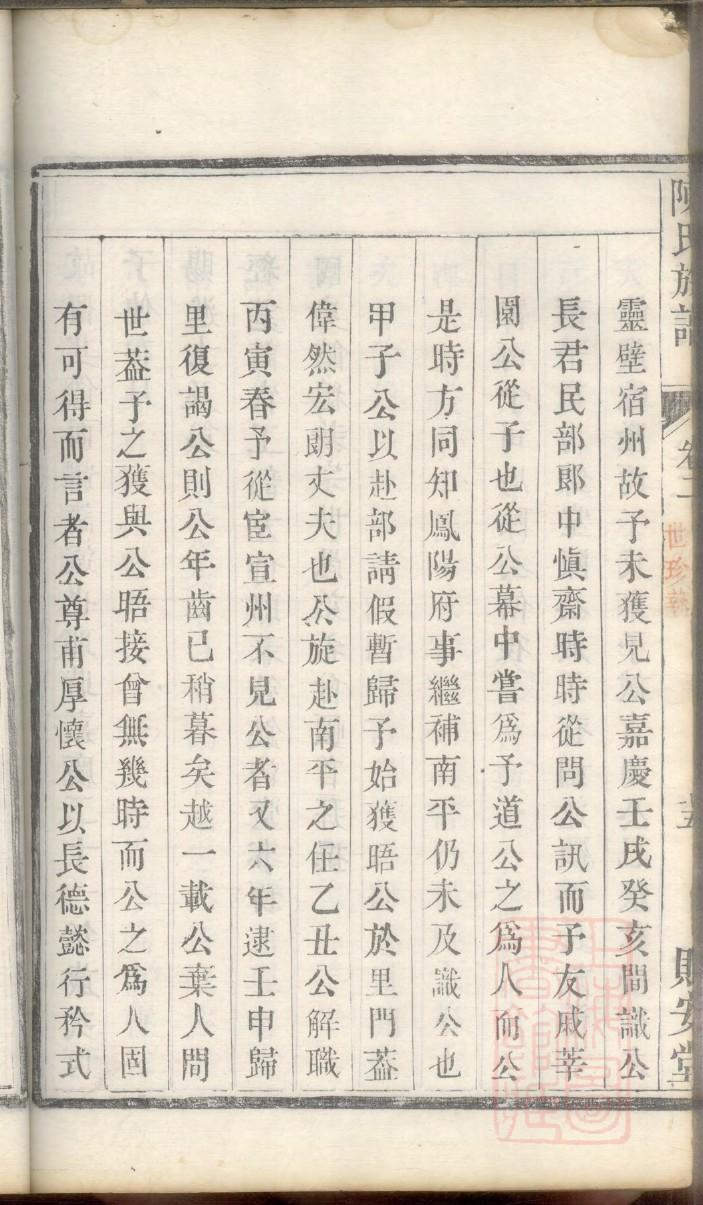 陳氏族譜
卷二
世珍藝
十五
貽安堂
靈壁宿州故予未獲見公嘉慶壬戌癸亥間識公
長君民部郎中慎齋時時從問公訊而予友戚莘
園公從子也從公幕中嘗爲予道公之爲人而公
是時方同知鳳陽府事繼補南平仍未及識公也
甲子公以赴部請假暫歸予始獲晤公於里門葢
偉然宏朗丈夫也公旋赴南平之任乙丑公解職
丙寅春予從宦宣州不見公者又六年逮壬申歸
里復謁公則公年齒已稍暮矣越一載公棄人間
世葢予之獲與公晤接曾無幾時而公之爲人固
有可得而言者公尊甫厚懷公以長德懿行矜式